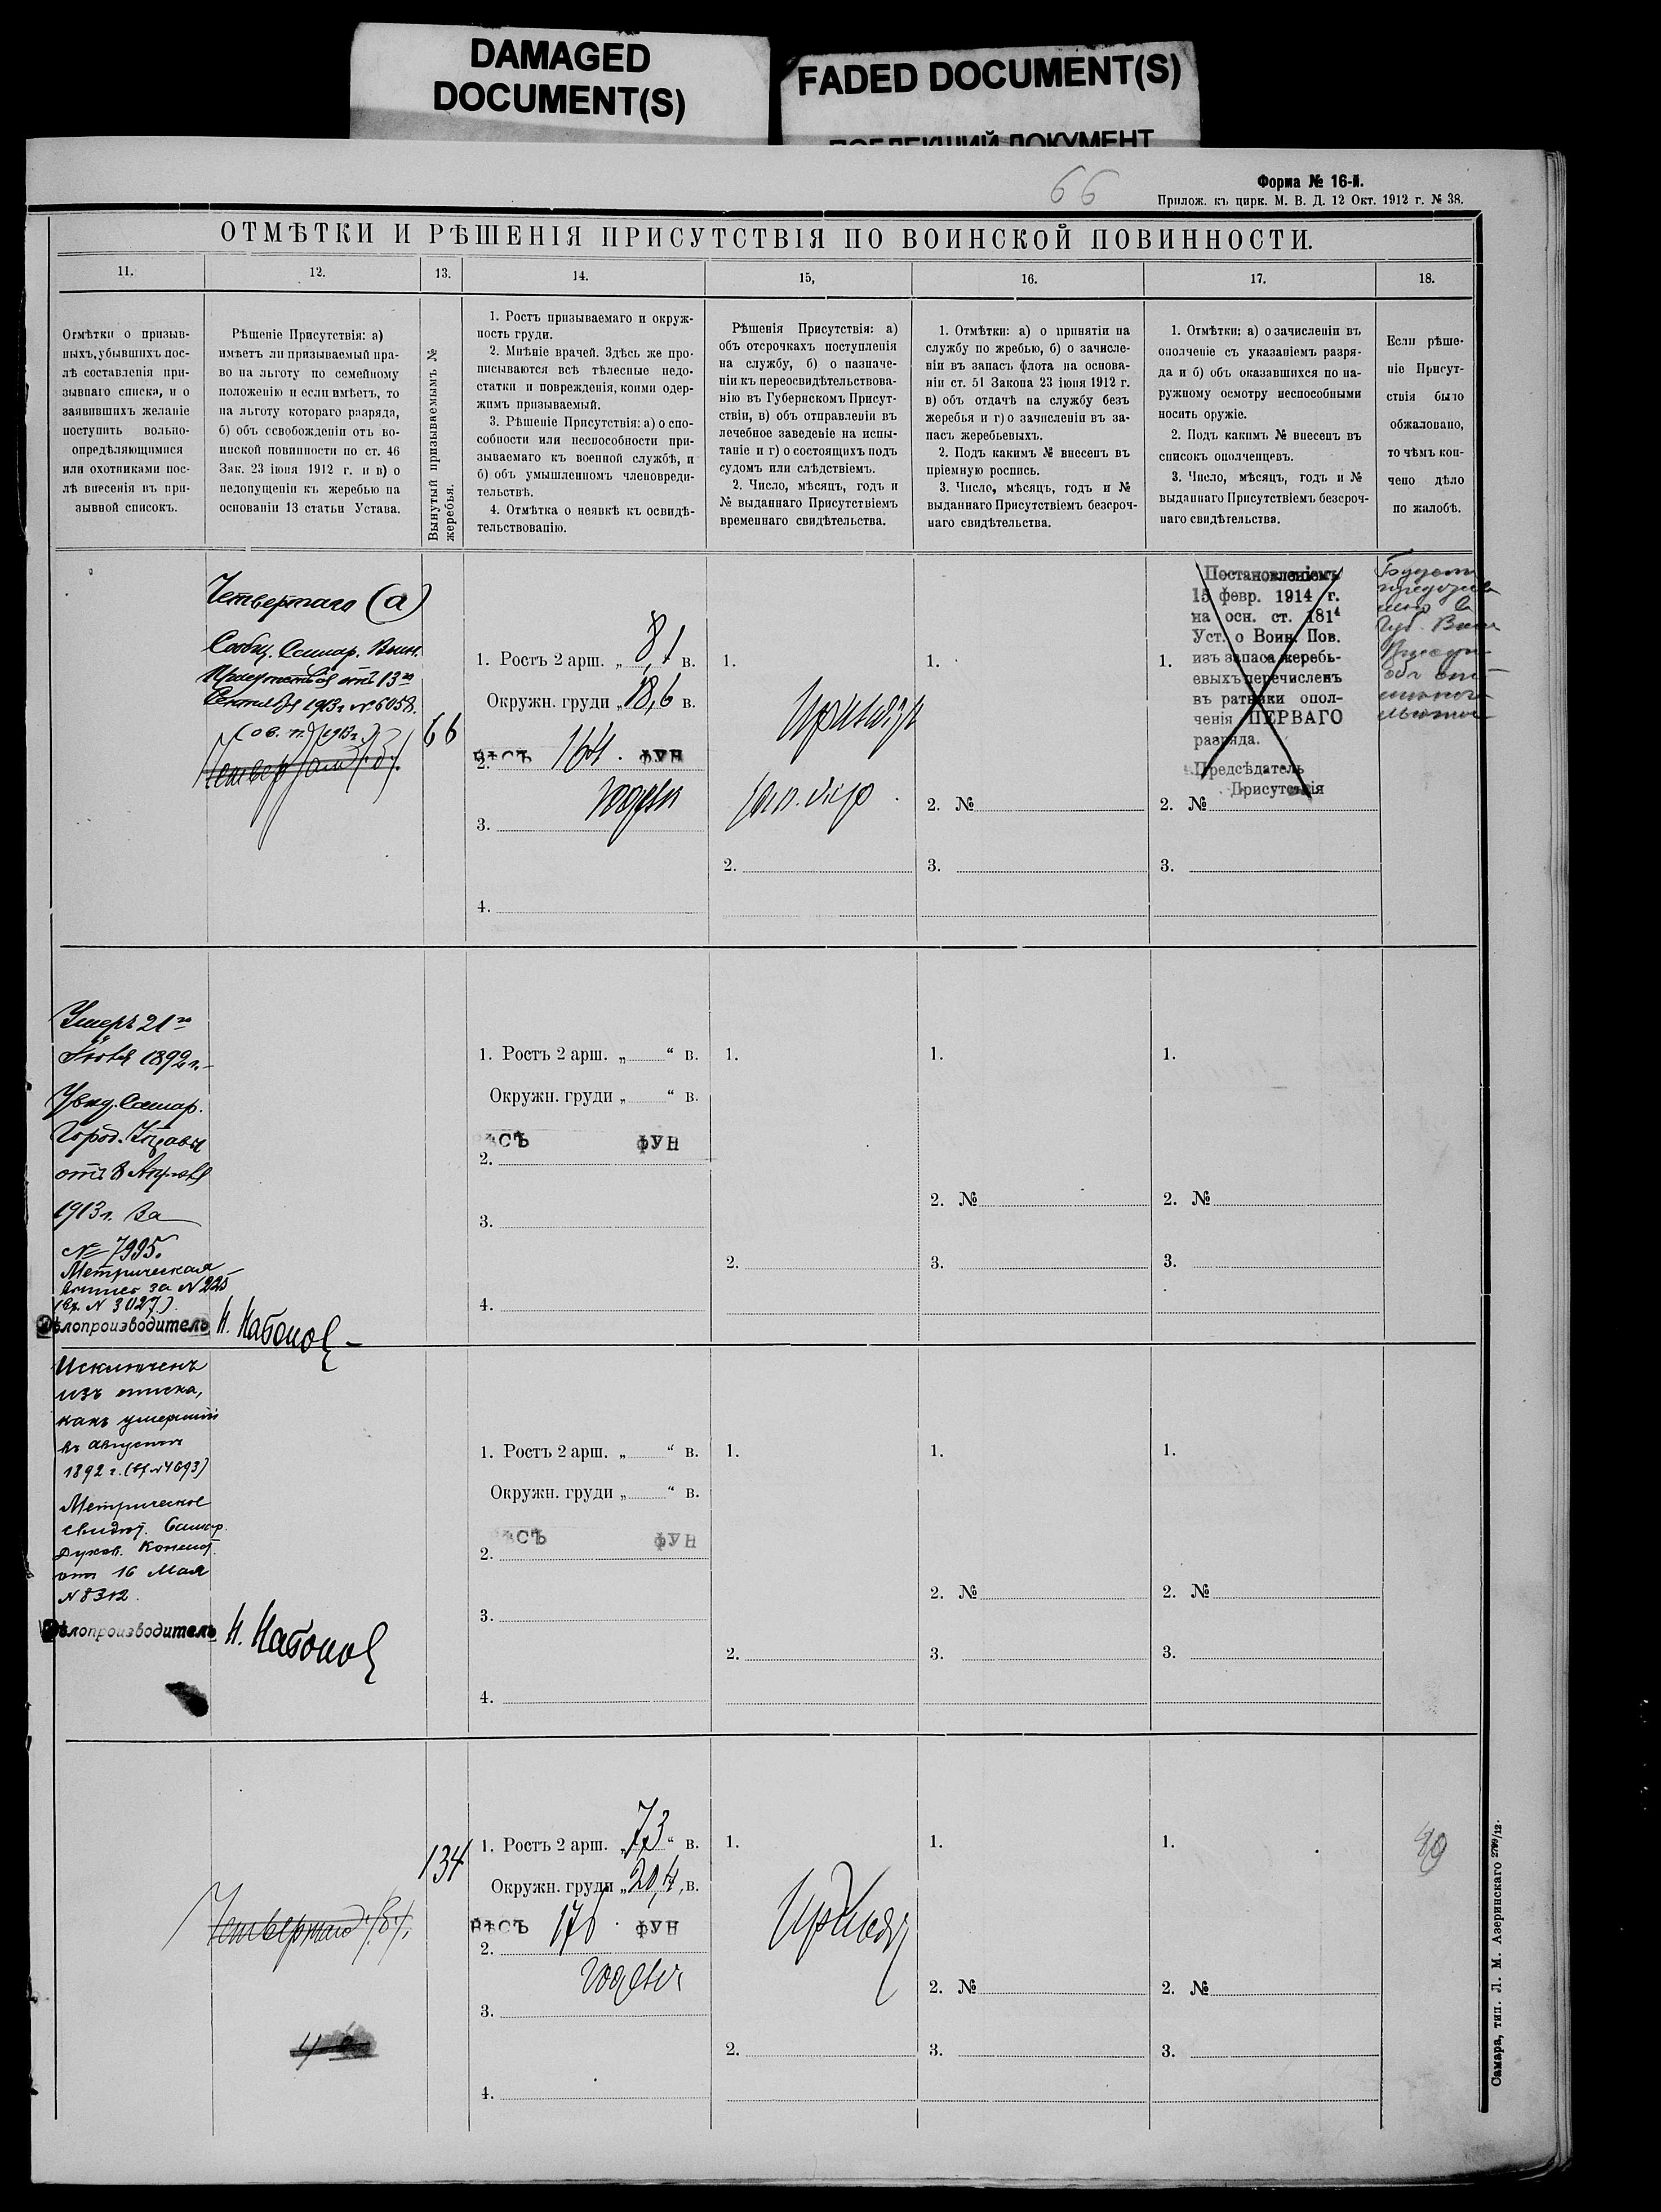 DAMAGED
DOCUMENT(S)
FADED DOCUMENT(S)
ПОБЛЕКШИЙ ДОКУМЕНТ
66
Форма № 16-й.
Прилож. къ цирк. М. В. Д. 12 Окт. 1912 г. № 38.
ОТМѢТКИ И РѢШЕНІЯ ПРИСУТСТВІЯ ПО ВОИНСКОЙ ПОВИННОСТИ.
11.
12.
13.
14.
15,
16.
17.
18.
Отмѣтки о призыв-
ныхъ, убывшихъ пос-
лѣ составленія при-
зывнаго списка, и о
заявившихъ желаніе
поступить вольно-
опредѣляющимися
или охотниками пос-
лѣ внесенія въ при-
зывной списокъ.
Рѣшеніе Присутствія: а)
имѣетъ ли призываемый пра-
во на льготу по семейному
положенію и если имѣетъ, то
на льготу котораго разряда,
б) объ освобожденіи отъ во-
инской повинности по ст. 46
Зак. 23 іюня 1912 г. и в) о
недопущеніи къ жеребью на
основаніи 13 статьи Устава.
Вынутый призываемымъ №
жеребья.
1. Ростъ призываемаго и окруж-
ность груди.
2. Мнѣніе врачей. Здѣсь же про-
писываются всѣ тѣлесные недо-
статки и поврежденія, коими одер-
жимъ призываемый.
3. Рѣшеніе Присутствія: а) о спо-
собности или неспособности при-
зываемаго къ военной службѣ, и
б) объ умышленномъ членовреди-
тельствѣ.
4. Отмѣтка о неявкѣ къ освидѣ-
тельствованію.
Рѣшенія Присутствія: а)
объ отсрочкахъ поступленія
на службу, б) о назначе-
ніи къ переосвидѣтельствова-
нію въ Губернскомъ Присут-
ствіи, в) объ отправленіи въ
лечебное заведеніе на испы-
таніе и г) о состоящихъ подъ
судомъ или слѣдствіемъ.
2. Число, мѣсяцъ, годъ и
№ выданнаго Присутствіемъ
временнаго свидѣтельства.
1. Отмѣтки: а) о принятіи на
службу по жребью, б) о зачисле-
ніи въ запасъ флота на основа-
ніи ст. 51 Закона 23 іюня 1912 г.
в) объ отдачѣ на службу безъ
жеребья и г) о зачисленіи въ за-
пасъ жеребьевыхъ.
2. Подъ какимъ № внесенъ въ
пріемную роспись.
3. Число, мѣсяцъ, годъ и №
выданнаго Присутствіемъ безсроч-
наго свидѣтельства.
1. Отмѣтки: а) о зачисленіи въ
ополченіе съ указаніемъ разря-
да и б) объ оказавшихся по на-
ружному осмотру неспособными
носить оружіе.
2. Подъ какимъ № внесенъ въ
списокъ ополченцевъ.
3. Число, мѣсяцъ, годъ и №
выданнаго Присутствіемъ безсроч-
наго свидѣтельства.
Если рѣше-
ніе Присут-
ствія было
обжаловано,
то чѣмъ кон-
чено дѣло
по жалобѣ.
Четвертаго (а)
Сообщ. Самар. Воин.
Присутствія отъ 13го
Сентября 1913 г. № 6058.
66
1. Ростъ 2 арш. „ 8,1 в.
Окружн. груди „ 18,6 в.
вѣсъ 164. фун
2.
3. годенъ
4.
1.
Принятъ
2.
1.
2. №
3.
Постановленіемъ
15 февр. 1914 г.
на осн. ст. 181⁴
Уст. о Воин. Пов.
изъ запаса жеребь-
евыхъ перечисленъ
въ ратники опол-
ченія ПЕРВАГО
разряда.
Предсѣдатель
Присутствія
1.
2. №
3.
Умеръ 21го
Іюля 1892 г.
Увѣд. Самар.
Город. Управы
отъ 8 Апрѣля
1913 г. за
№ 7995.
Метрическая
выпись за № 225
(Вх. № 3027).
Дѣлопроизводитель
1. Ростъ 2 арш. „ “ в.
Окружн. груди „ “ в.
вѣсъ фун
2.
3.
4.
1.
2.
1.
2. №
3.
1.
2. №
3.
Исключенъ
изъ списка,
какъ умершій
въ августѣ
1892 г. (вх № 4693)
Метрическое
свидѣт. Самар.
Духов. Консист.
отъ 16 Мая
№ 8312.
Дѣлопроизводитель
1. Ростъ 2 арш. „ “ в.
Окружн. груди „ “ в.
вѣсъ фун
2.
3.
4.
1.
2.
1.
2. №
3.
1.
2. №
3.
Четвертаго (б).
134
1. Ростъ 2 арш. „ 7,3 “ в.
Окружн. груди „ 20,4, в.
вѣсъ 176. фун
2.
3. годенъ
4.
1.
Принятъ
2.
1.
2. №
3.
1.
2. №
3.
49
Самара, тип. Л. М. Азеринскаго 2799/12.